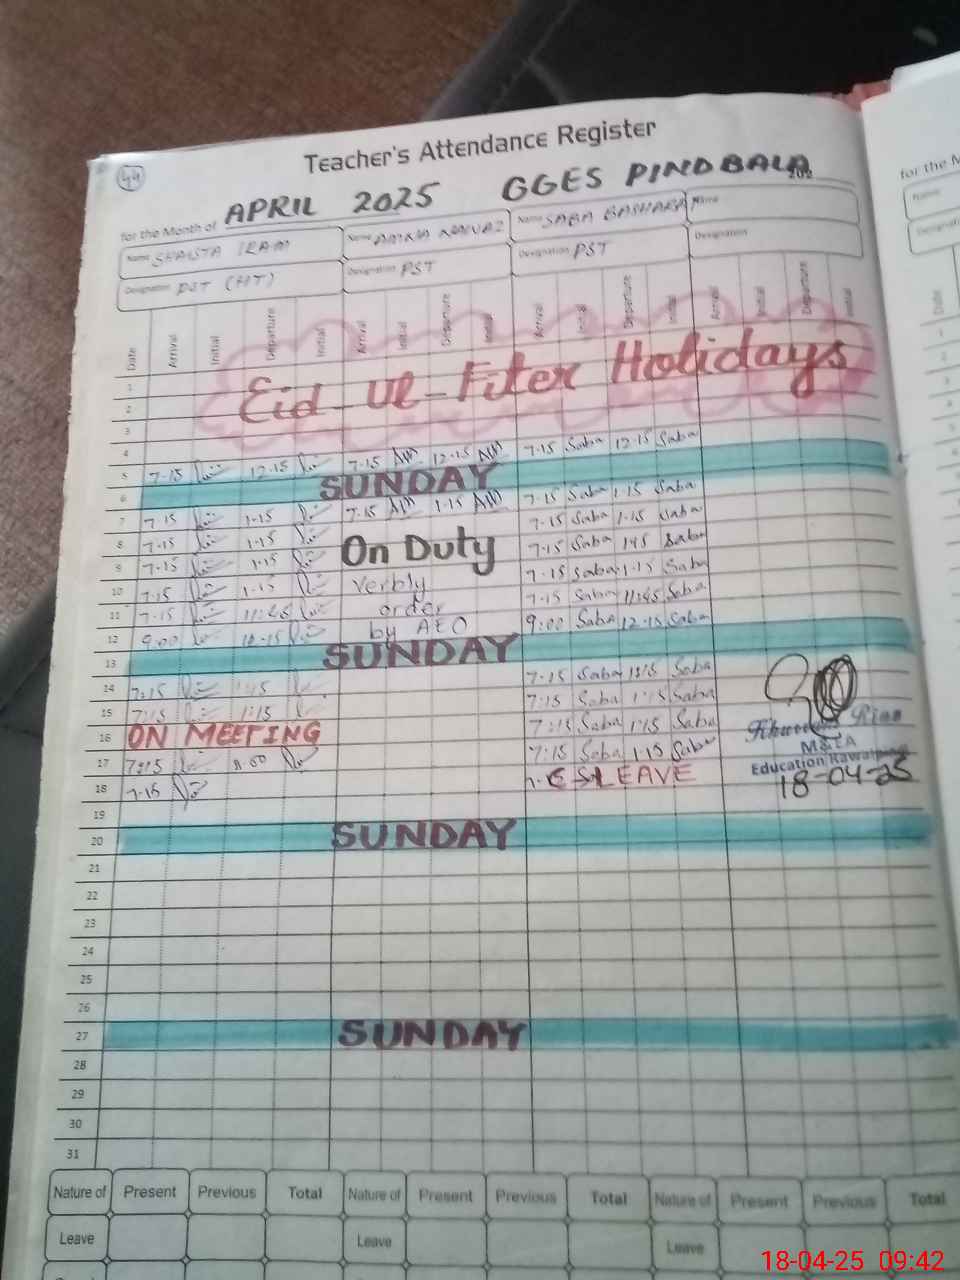 44
Teacher's Attendance Register
for the Month of APRIL 2025 GGES PIND BALA 202
Name SHAISTA IRAM Name AMNA NAWAZ Name SABA BASHARAT Name
Designation PST (HT) Designation PST Designation PST Designation
Date Arrival Initial Departure Initial Arrival Initial Departure Initial Arrival Initial Departure Initial Arrival Initial Departure Initial
1
Eid-Ul-Fiter Holidays
2
3
4
5 7-15 12-15 7-15 AN 12-15 AN 7-15 Saba 12-15 Saba
6 SUNDAY
7 7-15 1-15 7-15 AN 1-15 AN 7-15 Saba 1-15 Saba
8 7-15 1-15 On Duty 7-15 Saba 1-15 Saba
9 7-15 1-15 7-15 Saba 1-15 Saba
10 7-15 1-15 verbly 7-15 Saba 1-15 Saba
11 7-15 11:45 order 7-15 Saba 11:45 Saba
12 9:00 12-15 by AEO 9:00 Saba 12-15 Saba
13 SUNDAY
14 7:15 1:15 7-15 Saba 1:15 Saba
15 7:15 1:15 7:15 Saba 1:15 Saba
16 ON MEETING 7:15 Saba 1:15 Saba
17 7:15 7:15 Saba 1-15 Saba
18 7-15 LEAVE
M&EA
Education Rawalpindi
18-04-25
19
20 SUNDAY
21
22
23
24
25
26
27 SUNDAY
28
29
30
31
Nature of Present Previous Total Nature of Present Previous Total Nature of Present Previous Total
Leave Leave Leave
for the M
Name
Date
18-04-25 09:42